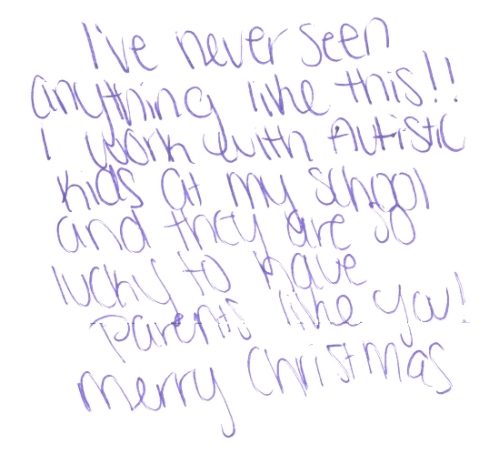 I've never seen
anything like this!!
I work with Autistic
kids at my school
and they are so
lucky to have
parents like you!
merry Christmas